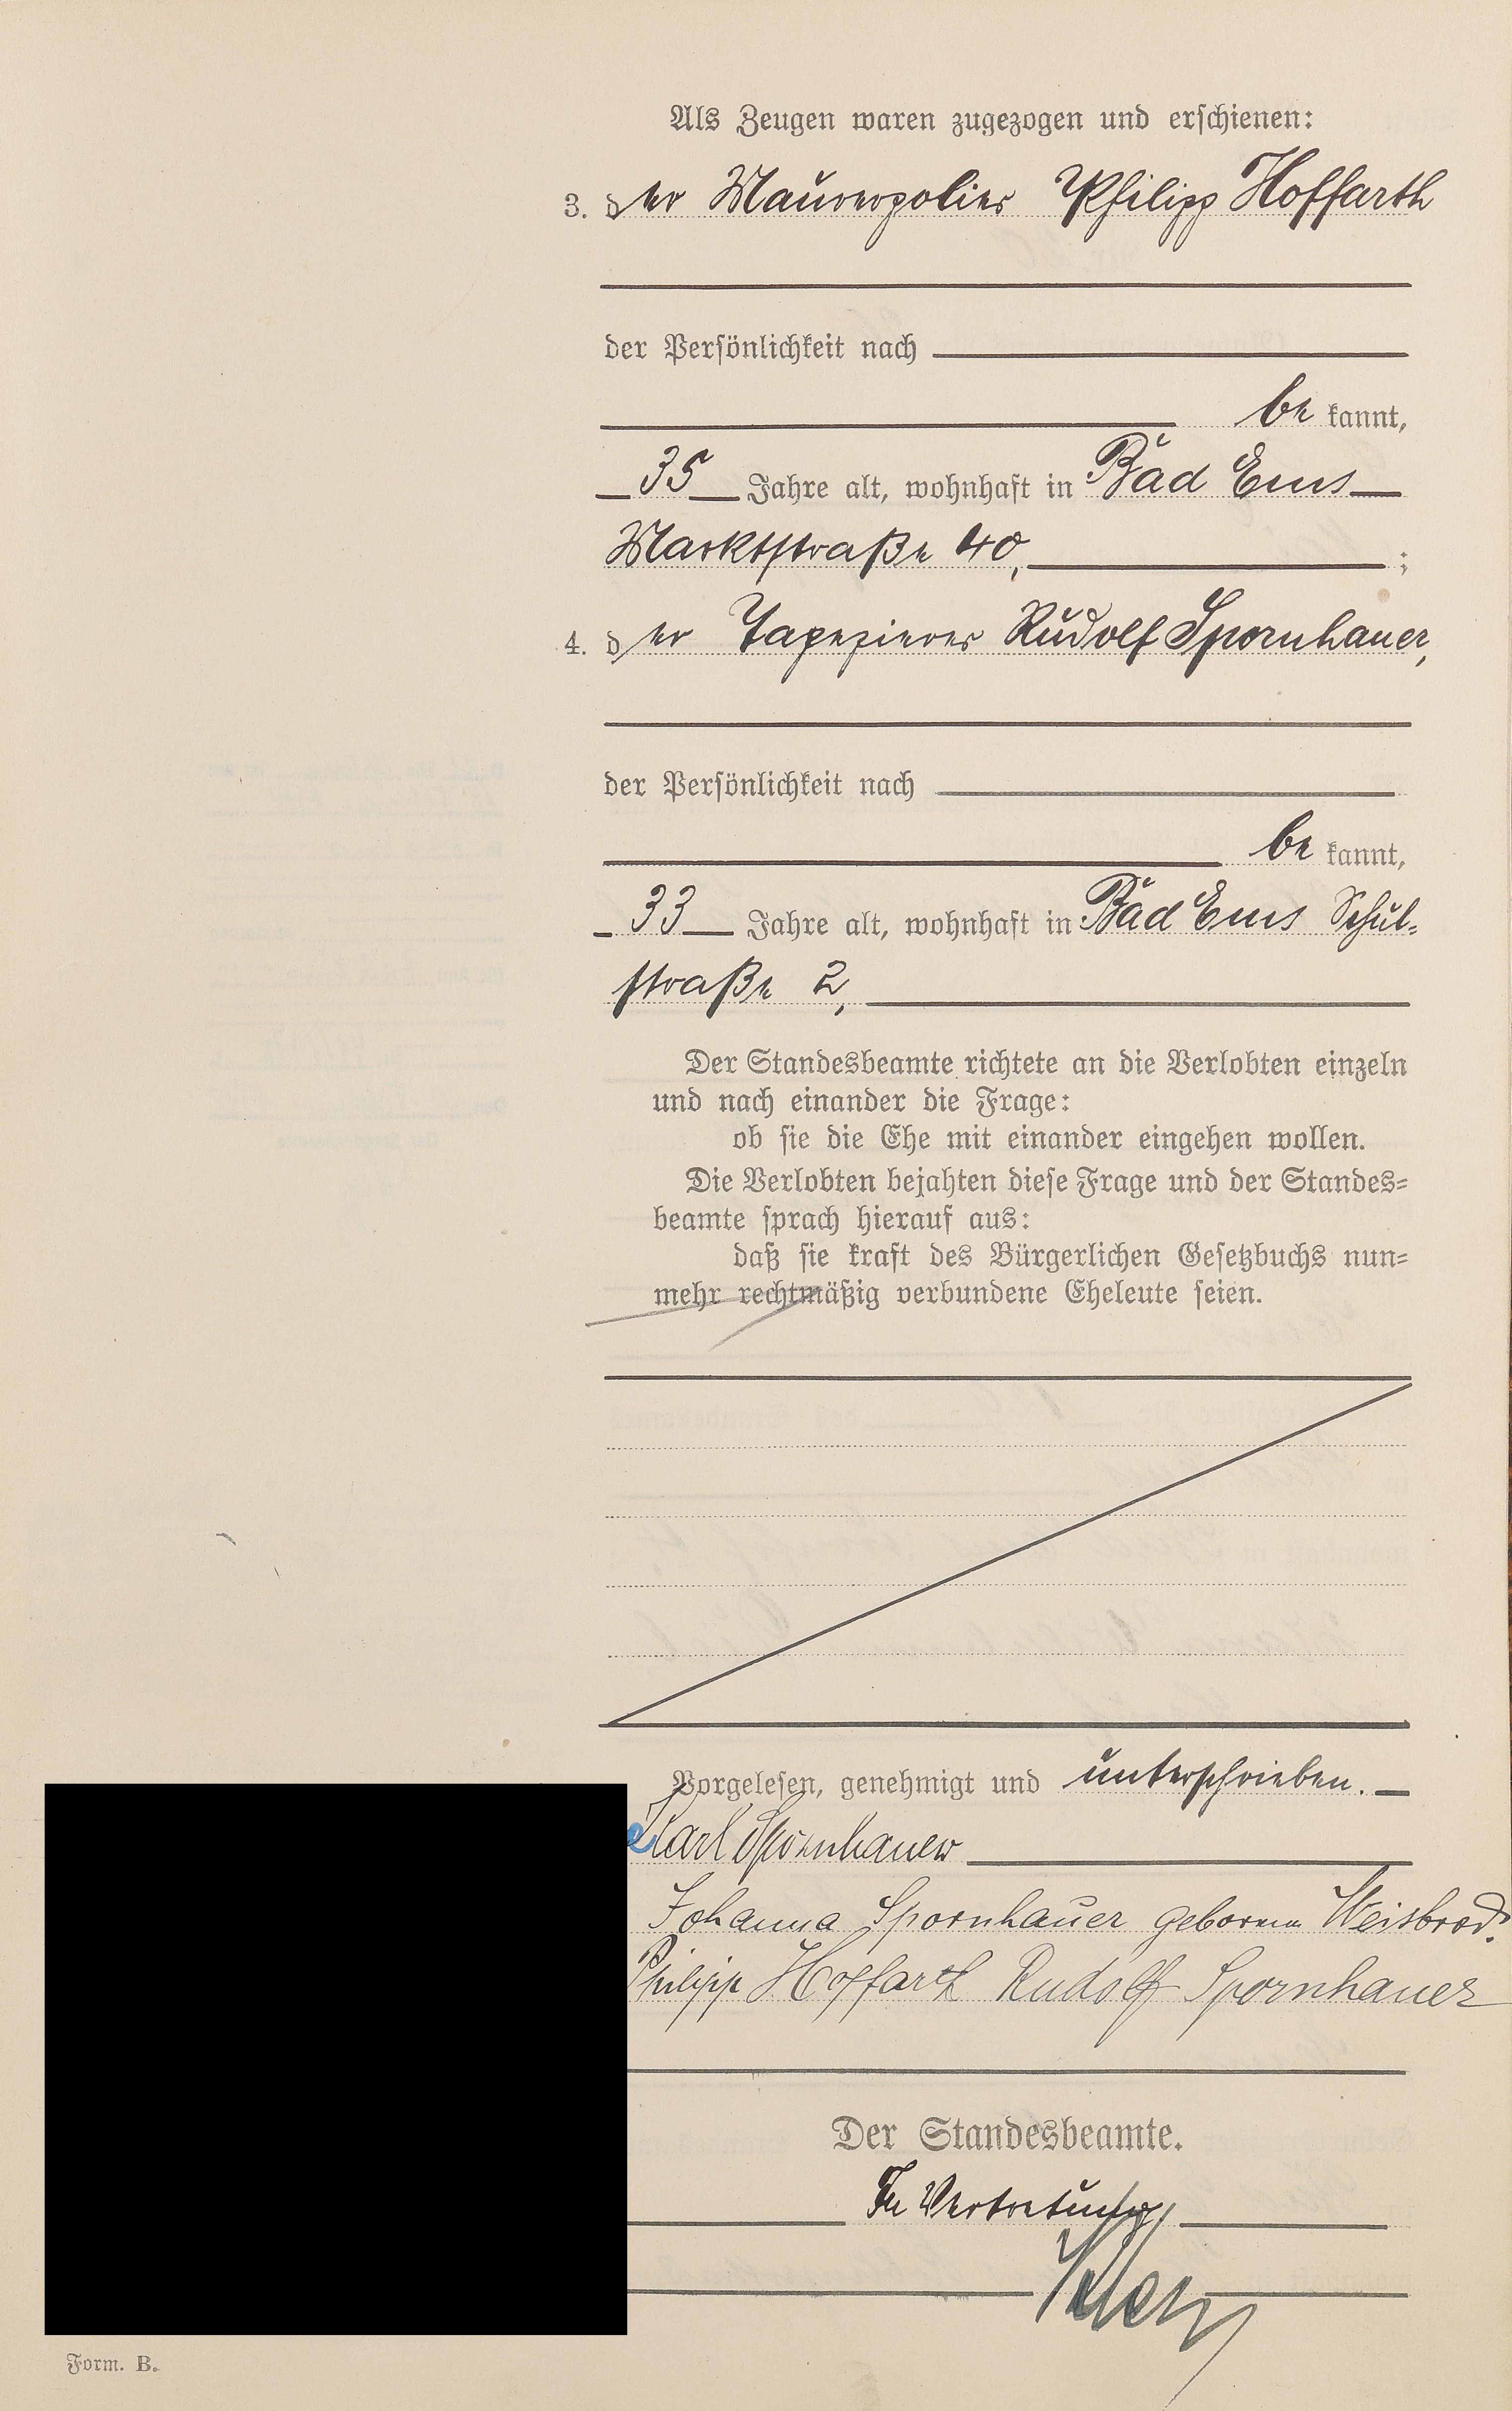 Als Zeugen waren zugezogen und erschienen:
3. der Maurerpolier Philipp Hoffarth
der Persönlichkeit nach
be kannt,
35 Jahre alt, wohnhaft in Bad Ems
Marktstraße 40, ;
4. der Tapezierer Rudolf Spornhauer,
der Persönlichkeit nach
be kannt,
33 Jahre alt, wohnhaft in Bad Ems Schul-
straße 2,
Der Standesbeamte richtete an die Verlobten einzeln
und nach einander die Frage:
ob sie die Ehe mit einander eingehen wollen.
Die Verlobten bejahten diese Frage und der Standes-
beamte sprach hierauf aus:
daß sie kraft des Bürgerlichen Gesetzbuchs nun-
mehr rechtmäßig verbundene Eheleute seien.
Vorgelesen, genehmigt und unterschrieben.
Karl Spornhauer
Johanna Spornhauer geborene Weisbrod.
Philipp Hoffarth Rudolf Spornhauer
Der Standesbeamte.
In Vertretung
Form. B.